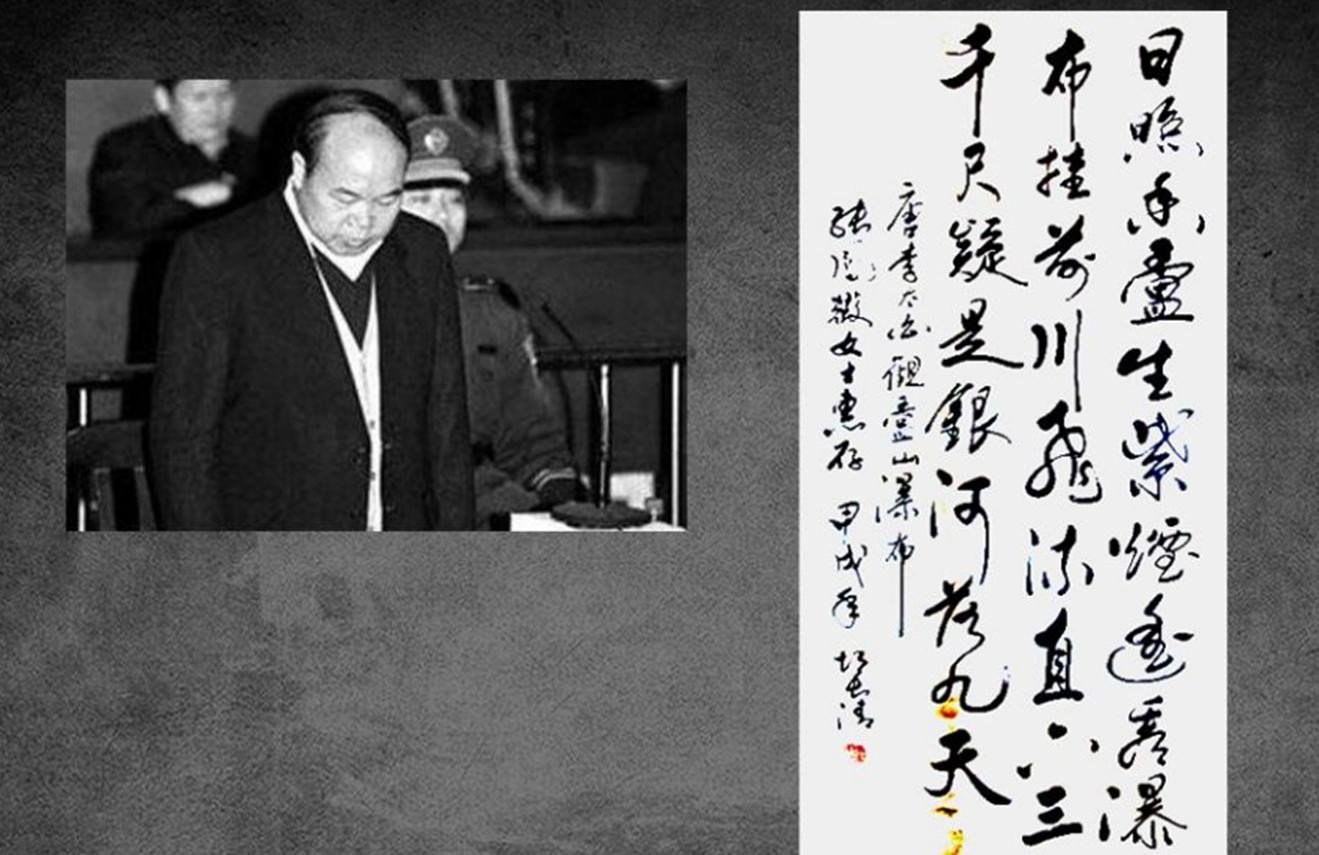 日照香盧生紫煙遙看瀑
布挂前川飛流直下三
千尺疑是銀河落九天
唐李太白觀盧山瀑布
張 徽女士惠存 甲戌年 胡長清